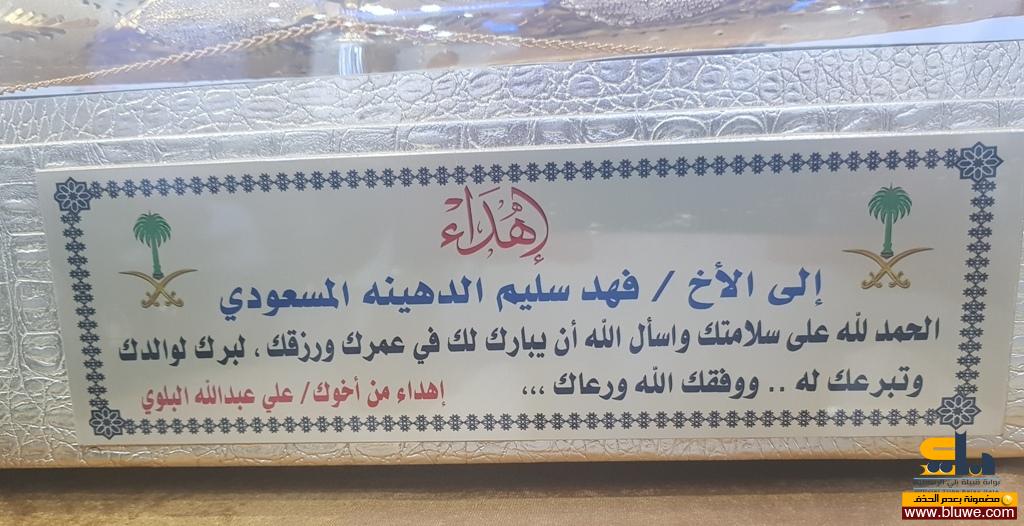 إهداء
إلى الأخ / فهد سليم الدهينه المسعودي
الحمد لله على سلامتك واسأل الله أن يبارك لك في عمرك ورزقك ، لبرك لوالدك
وتبرعك له .. ووفقك الله ورعاك ،،،
إهداء من أخوك/ علي عبدالله البلوي
بلي
بوابة قبيلة بلي الرسمية
مضمونة بعدم الحذف
www.bluwe.com